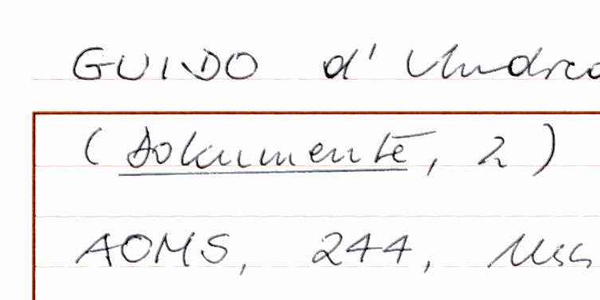 GUIDO d'Andrea
(Dokumente, 2)
AOMS, 244,